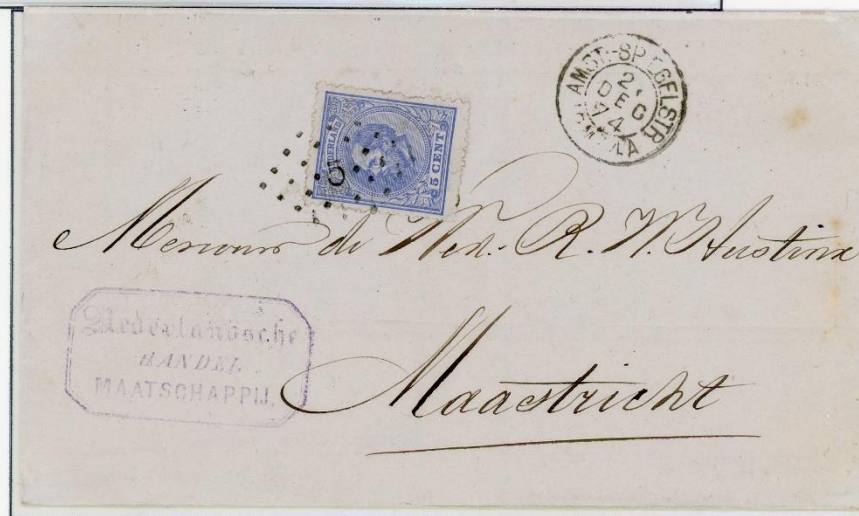 AMST-SPIEGELSTR
2,
DEC
74
NEDERLAND
5 CENT
5
Mevrouw de Wed. R. W. Austina
Nederlandsche
HANDEL
MAATSCHAPPIJ.
Maastricht